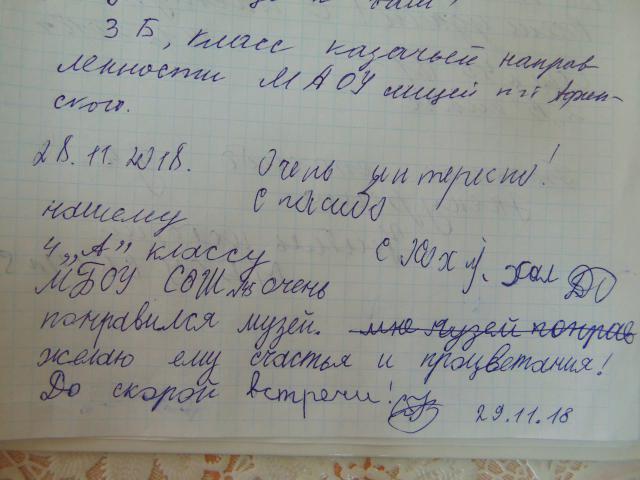 3 Б, класс казачьей направ
ленности МАОУ лицей пгт Афип-
ского.
28.11.2018. Очень интересно!
Спасибо
нашему
4 „А" классу
МБОУ СОШ №5 очень
понравился музей. мне музей понрав
желаю ему счастья и процветания!
До скорой встречи!
29.11.18